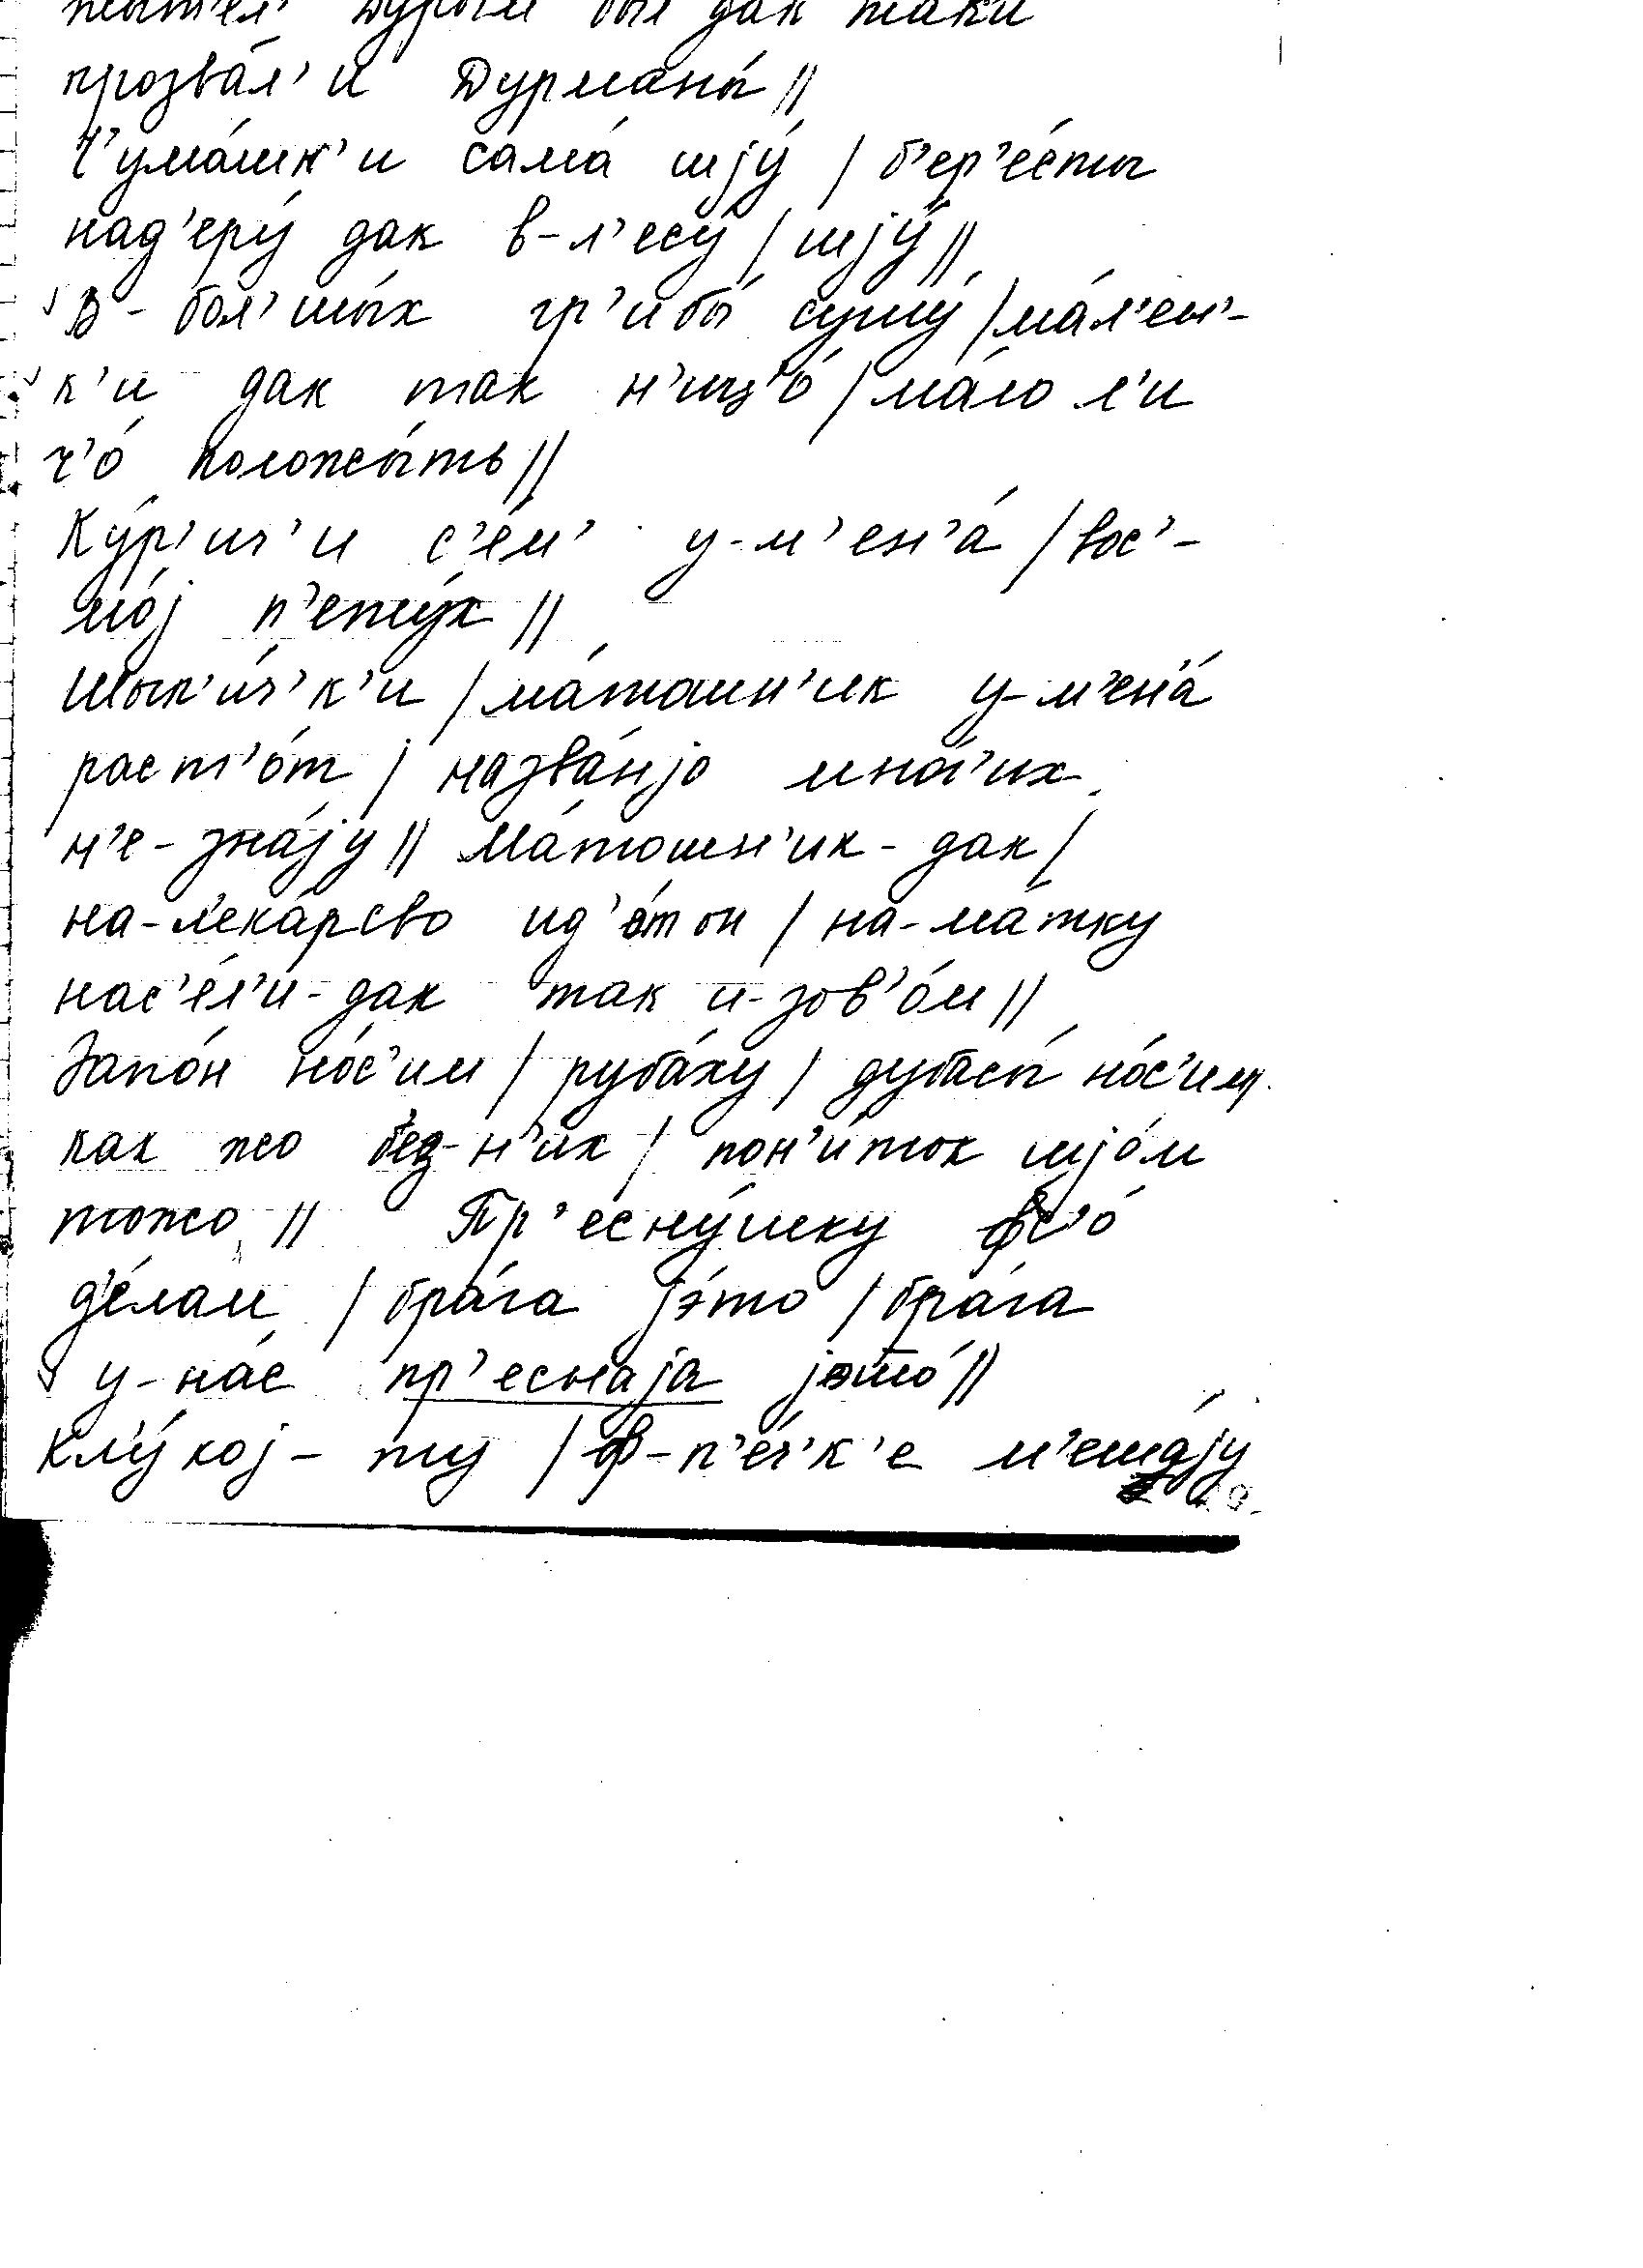 жыт'ел' Дурым был дак таки
прозва́л'и Дурманы́ ||
Ч'ума́шк'и сама́ шjу́ | б'ер'е́сты
над'еру́ дак в-л'есу́ | шjу́ ||
В-бол'шы́х гр'ибы́ сушу́ | ма́л'ен'-
к'и дак так н'ишч'о́ | ма́ло л'и
ч'о́ положы́ть ||
Ку́р'ич'и с'е́м' у-м'ен'а́ | вос'-
мо́j п'ету́х ||
Шып'и́ч'к'и | ма́тошн'ик у-м'ен'а́
раст'о́т | назва́нjо мно́г'их
н'е-зна́jу || Ма́тошн'ик-дак |
на-л'ека́рсво ид'о́т он | на-ма́тку
нас'е́л'и-дак так и-зов'о́м ||
Запо́н но́с'им | руба́ху | дубасы́ но́с'им
как жо без-н'их | пон'и́ток шjо́м
тожо || Пр'есну́шку фс'о́
д'е́лам | бра́га jэ́то | бра́га
у-на́с пр'еснаjа jэто́ ||
Кл'у́коj-ту | ф-п'е́ч'к'е м'еша́jу